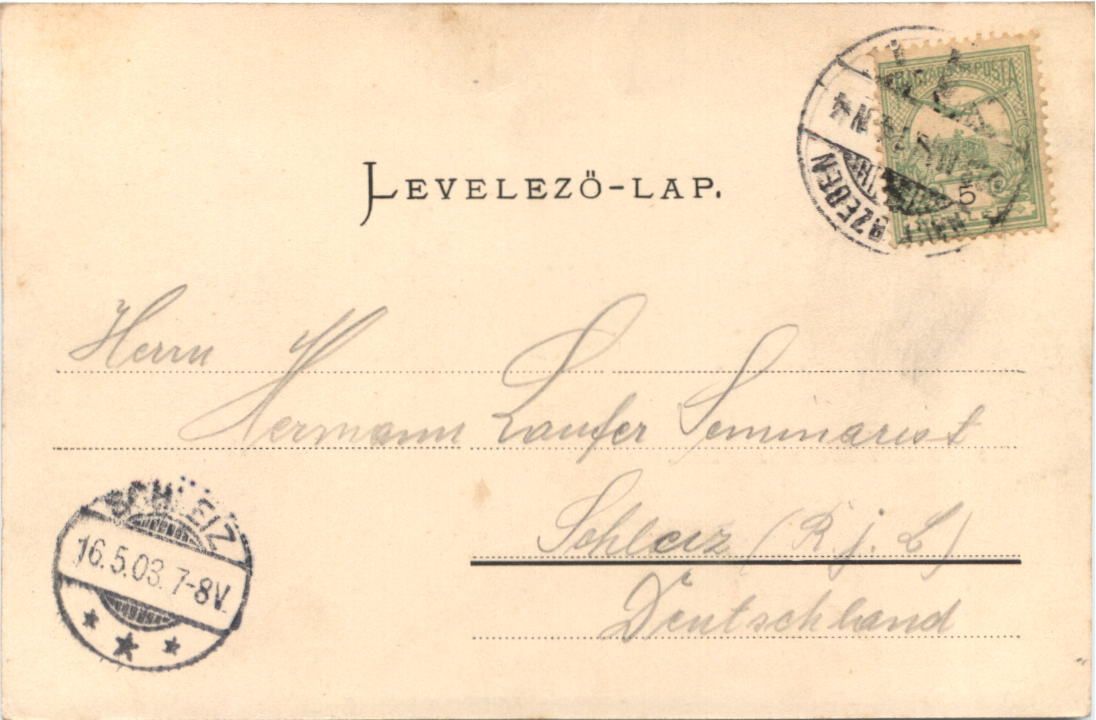 LEVELEZŐ-LAP.
MAGYAR POSTA
5
SZEBEN
Herrn
Hermann Laufer Seminarist
Schleiz (R j. L)
Deutschland
SCHLEIZ
16.5.03. 7-8V.